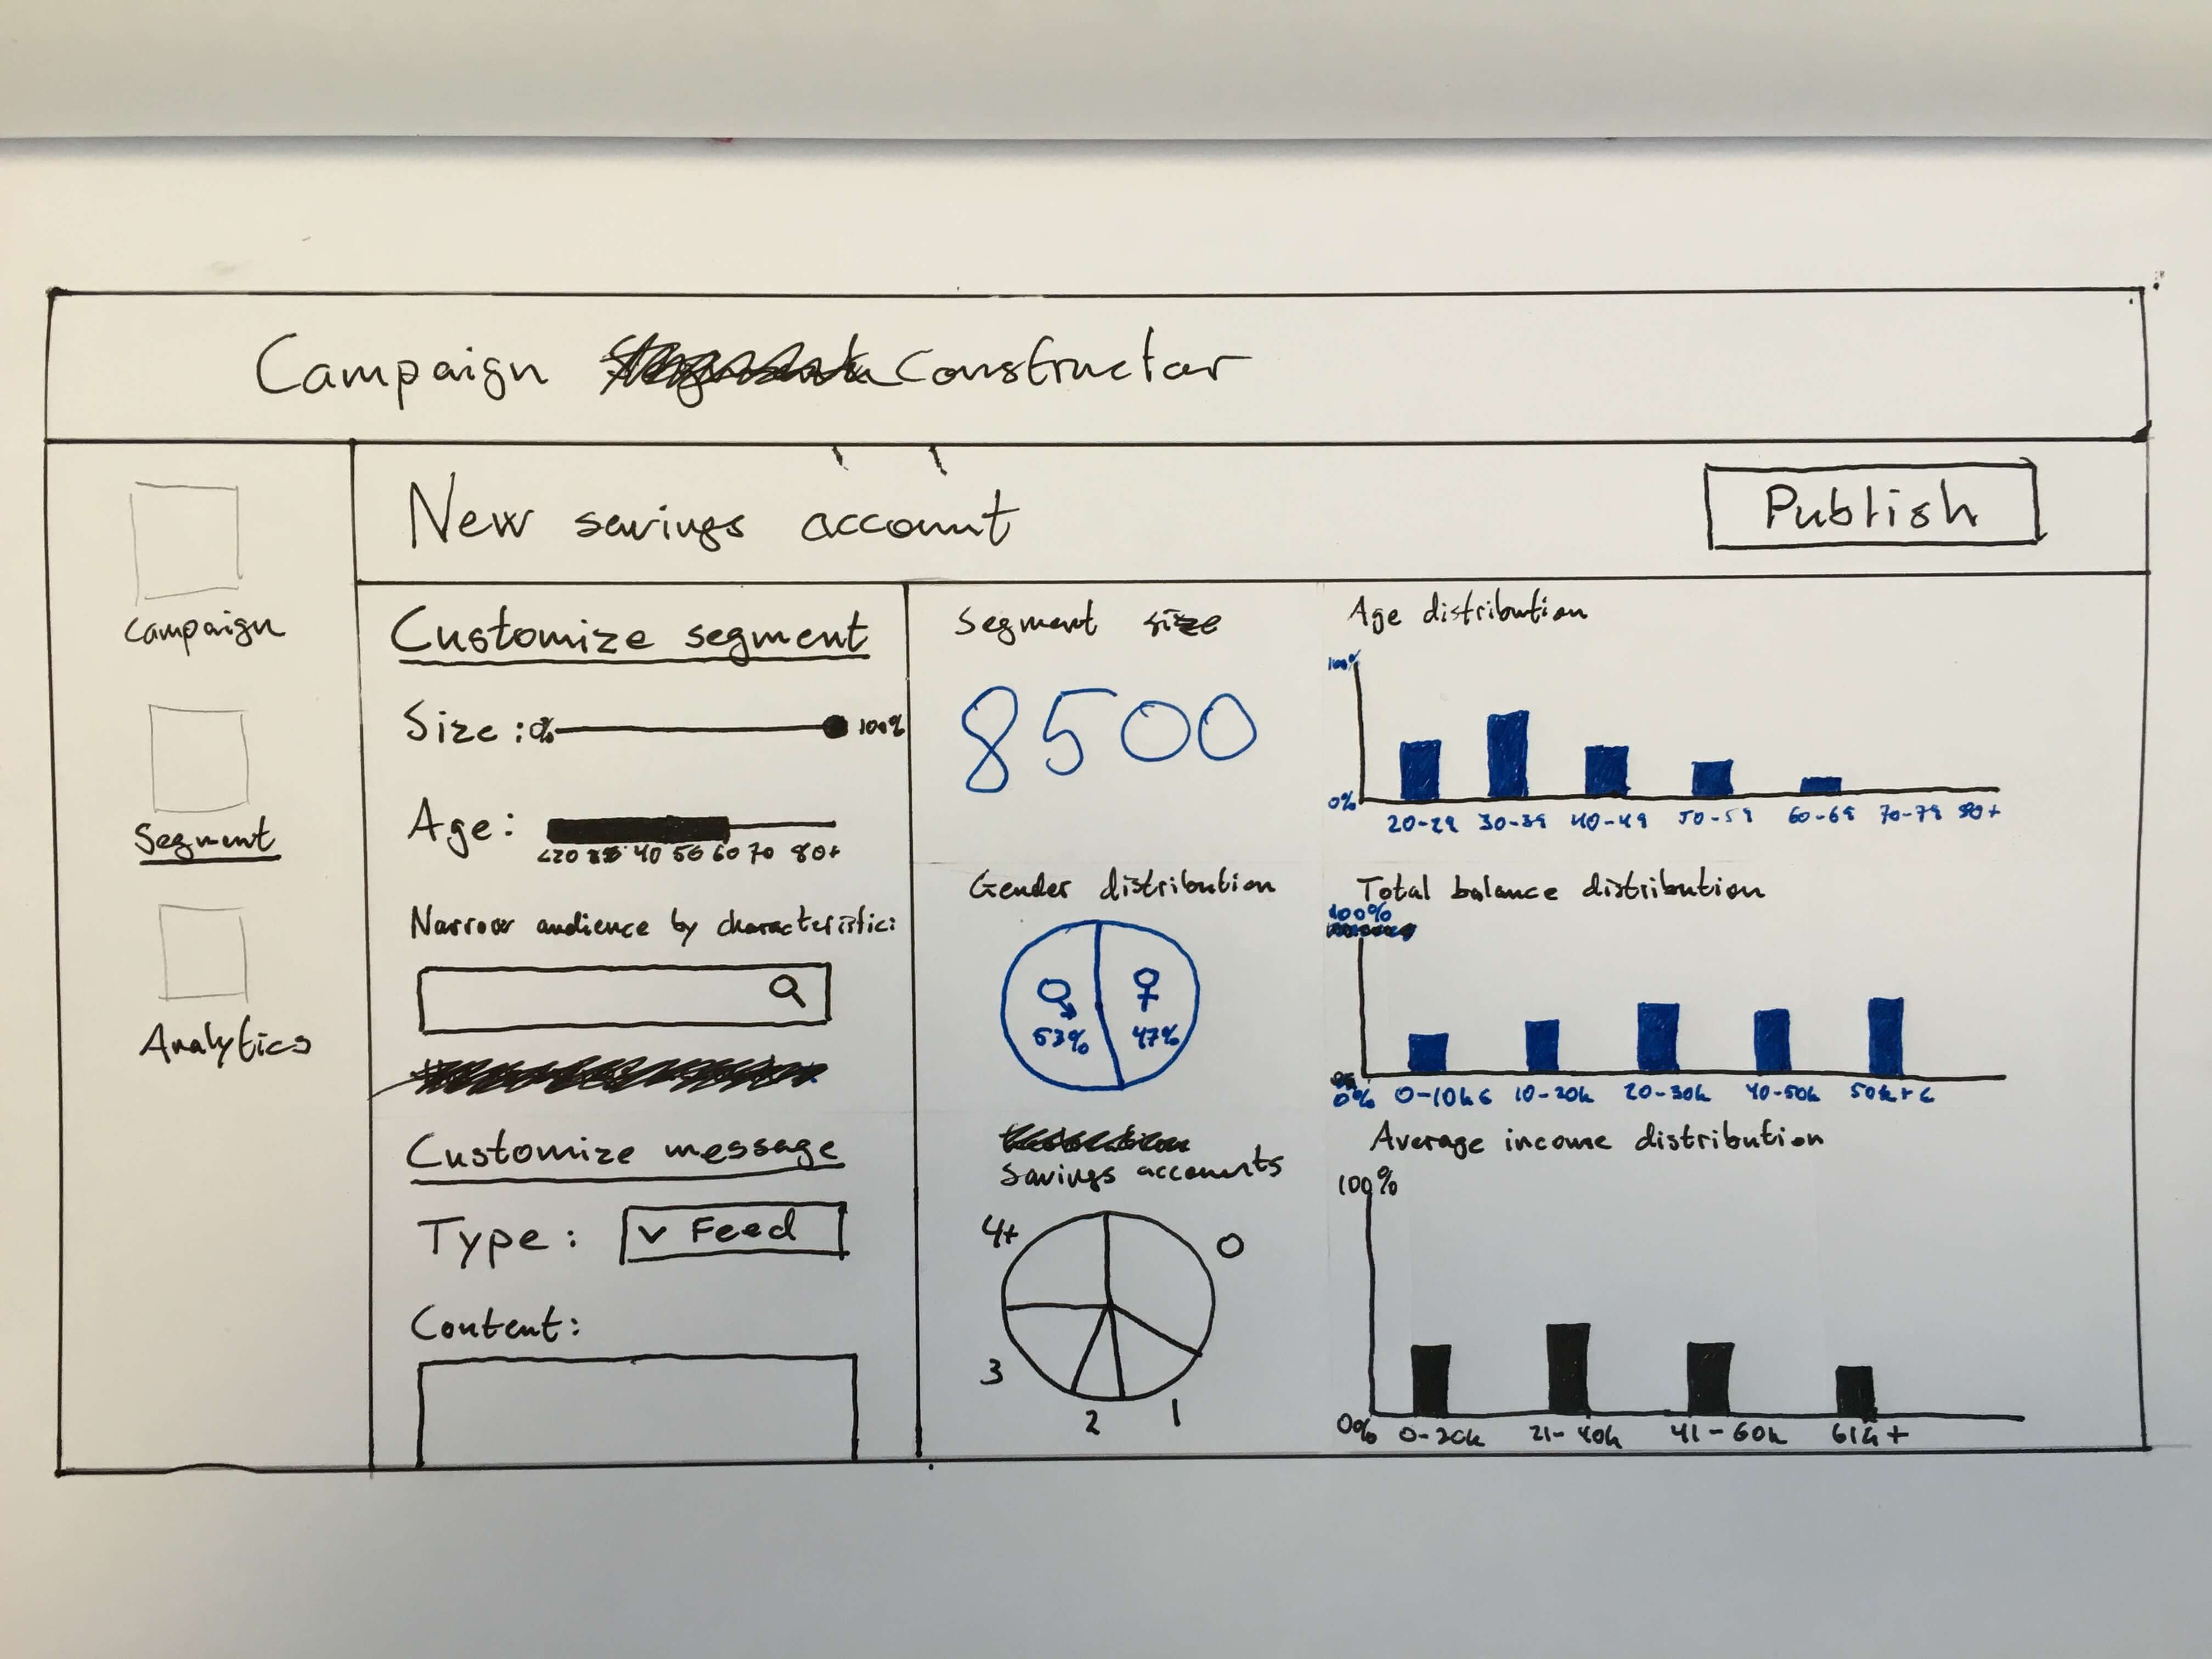 Campaign Constructor
New savings account
Publish
Campaign
Segment
Analytics
Customize segment
Size: 0% 100%
Age:
<20 40 50 60 70 80+
Narrow audience by characteristic:
Customize message
Type: v Feed
Content:
Segment size
8500
Gender distribution
53% 47%
Savings accounts
4+ 0
3
2 1
Age distribution
100%
0%
20-29 30-39 40-49 50-59 60-69 70-79 80+
Total balance distribution
100%
0% 0-10k€ 10-20k 20-30k 40-50k 50k+€
Average income distribution
100%
0% 0-20k 21-40k 41-60k 61k+